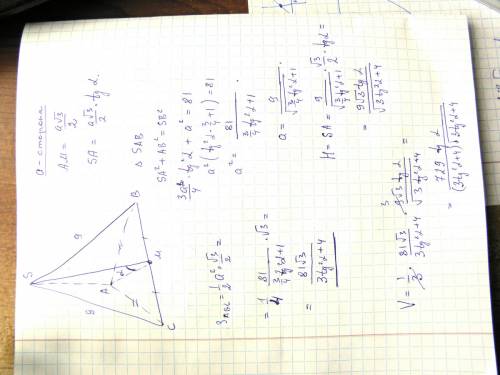 S
9
9
A
B
α
M
C
a - сторона
AM = a√3/2
SA = a√3/2 · tg α
Δ SAB
SA² + AB² = SB²
3a²/4 · tg²α + a² = 81
a² (tg²α · 3/4 + 1) = 81
a² = 81/(3/4 tg²α + 1) .
a = 9/√(3/4 tg²α + 1)
H = SA = 9/√(3/4 tg²α + 1) · √3/2 · tg α =
= 9√3 tg α/√(3 tg²α + 4)
S ABC = 1/2 a² · √3/2 =
= 1/4 · 81/(3/4 tg²α + 1) · √3 =
= 81√3/(3 tg²α + 4)
V = 1/3 · 81√3/(3 tg²α + 4) · 9√3 tg α/√(3 tg²α + 4) =
= 729 tg α/((3 tg²α + 4)√(3 tg²α + 4))